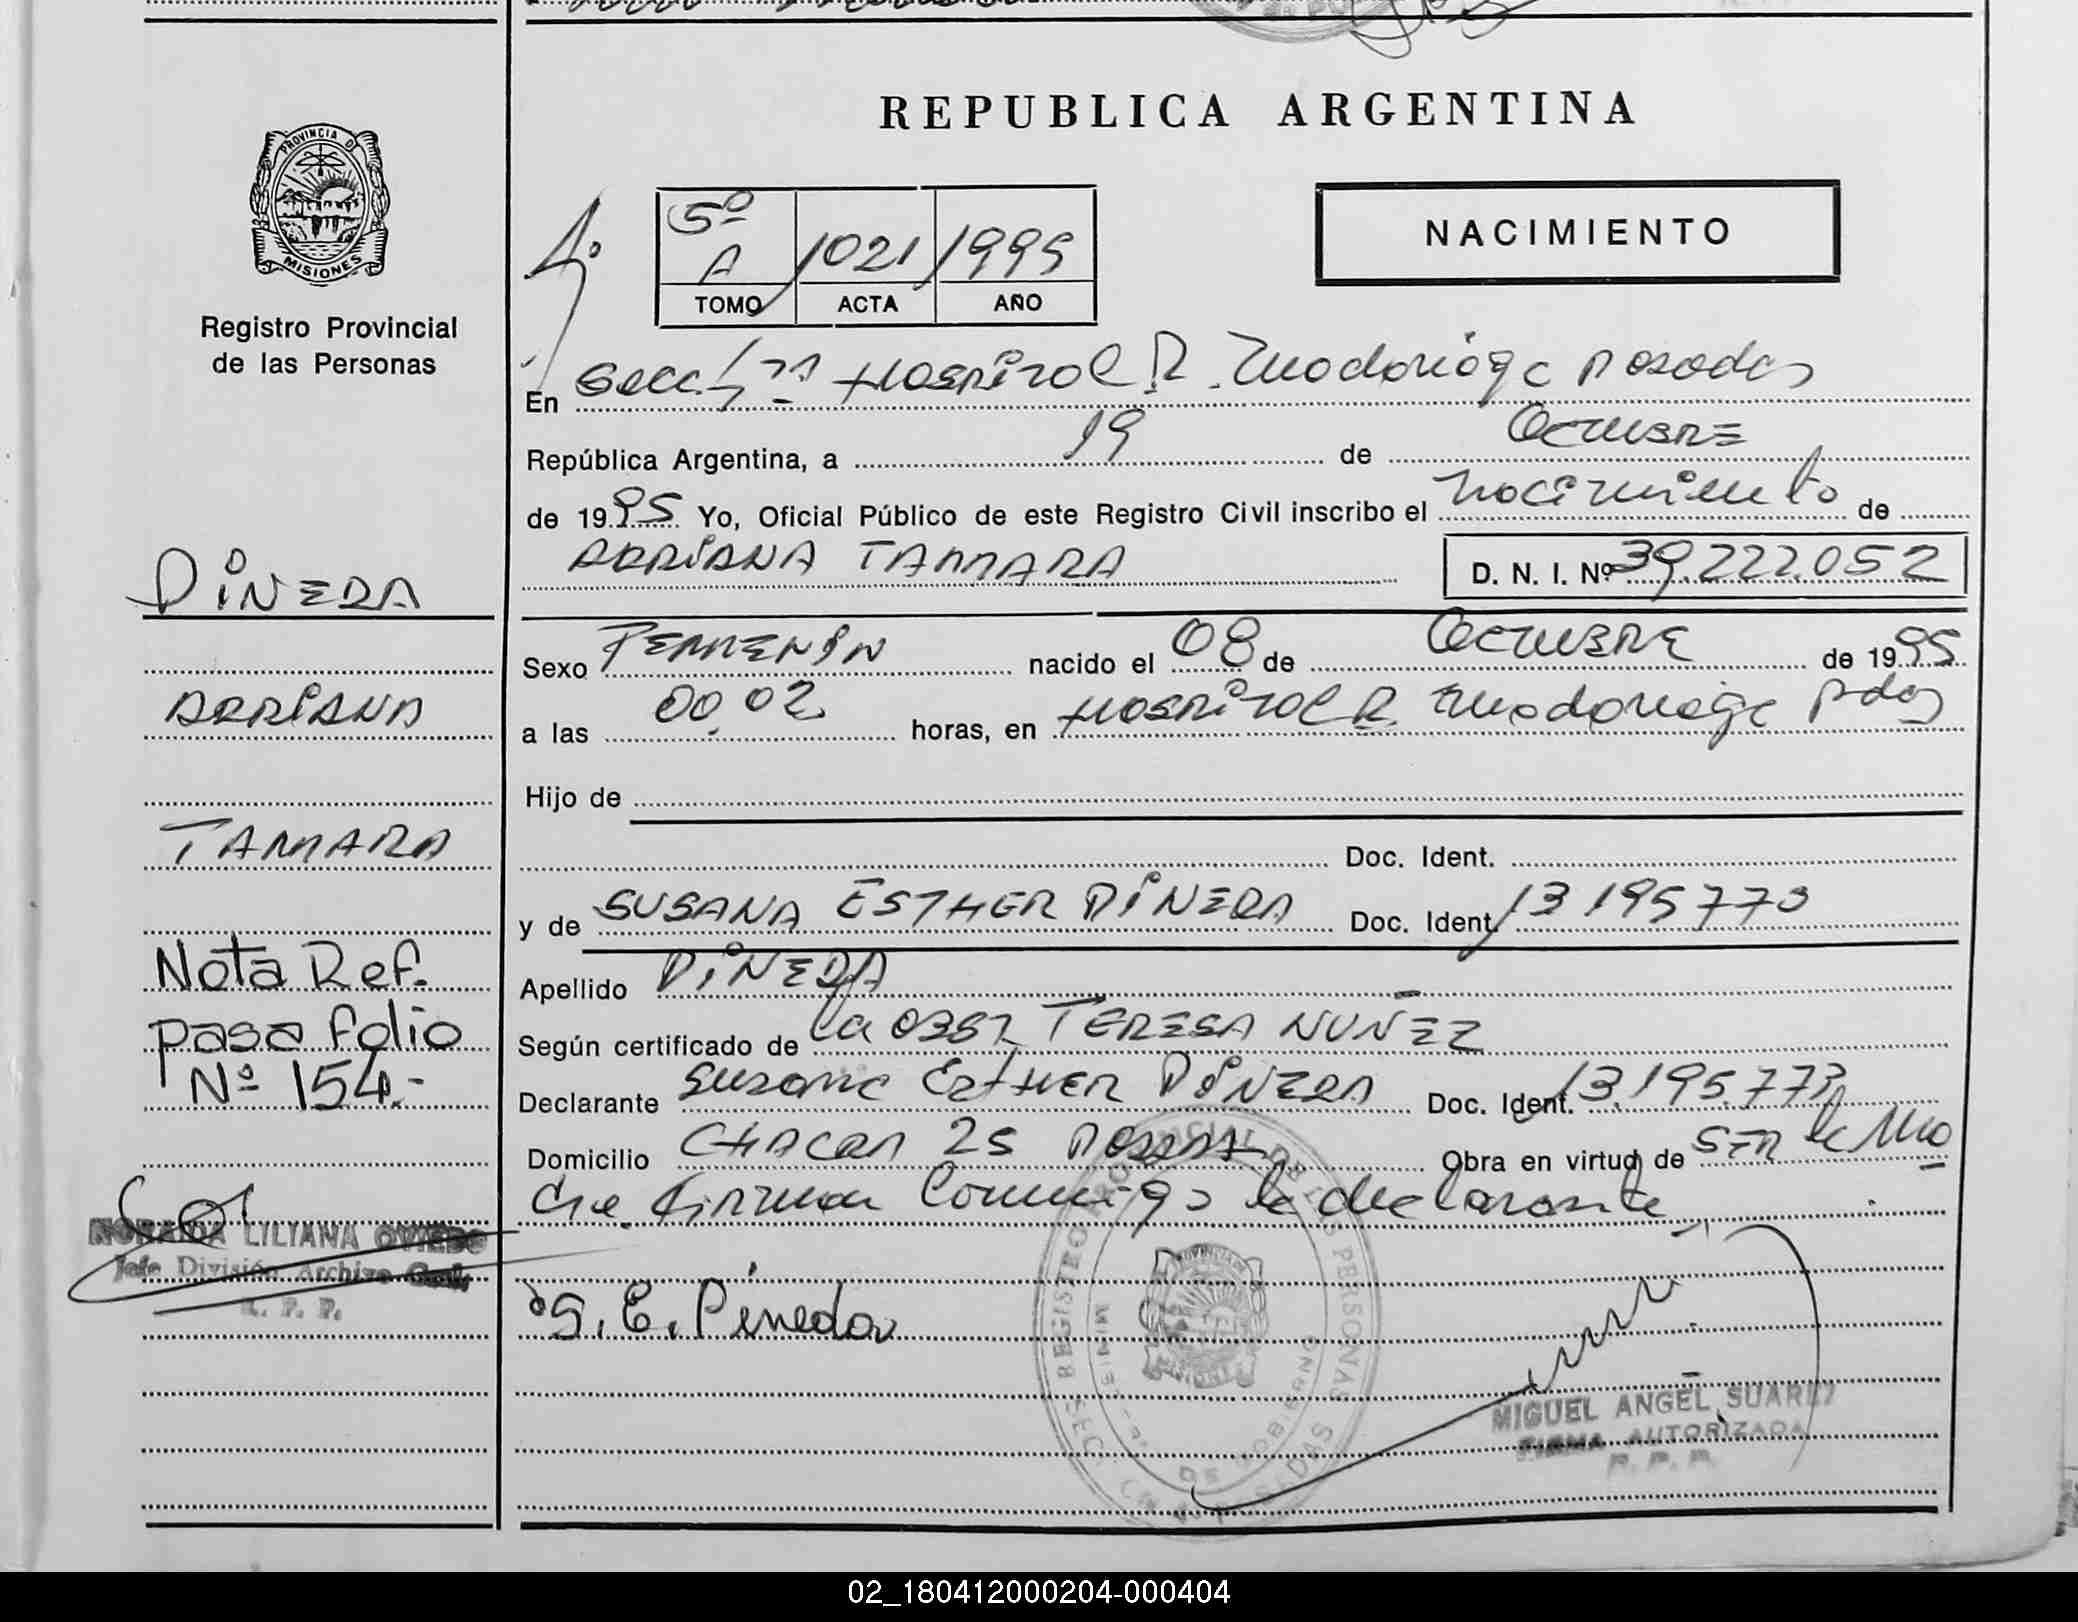 REPUBLICA ARGENTINA
PROVINCIA DE
MISIONES
Registro Provincial
de las Personas
5º
A 1021 1995
TOMO ACTA AÑO
NACIMIENTO
En Secc. 7ma Hospital R. Madariaga Posadas
República Argentina, a 19 de Octubre
de 1995 Yo, Oficial Público de este Registro Civil inscribo el nacimiento de
ADRIANA TAMARA D. N. I. Nº 39.222.052
Sexo FEMENIN nacido el 08 de Octubre de 1995
a las 00.02 horas, en Hospital R. Madariaga Pdas
Hijo de
Doc. Ident.
y de SUSANA ESTHER PINEDA Doc. Ident. 13195773
Apellido PINEDA
Según certificado de la OBST TERESA NUÑEZ
Declarante Susana Esther PINEDA Doc. Ident. 13.195.773
Domicilio CHACRA 25 Obra en virtud de
firman conmigo la declarante
S. E. Pineda
MIGUEL ANGEL SUAREZ
FIRMA AUTORIZADA
PINEDA
ADRIANA
TAMARA
Nota Ref.
pasa folio
Nº 154.-
LILIANA OVIEDO
Jefe División Archivo Gral.
R. P. P.
REGISTRO PROVINCIAL DE LAS PERSONAS
02_180412000204-000404